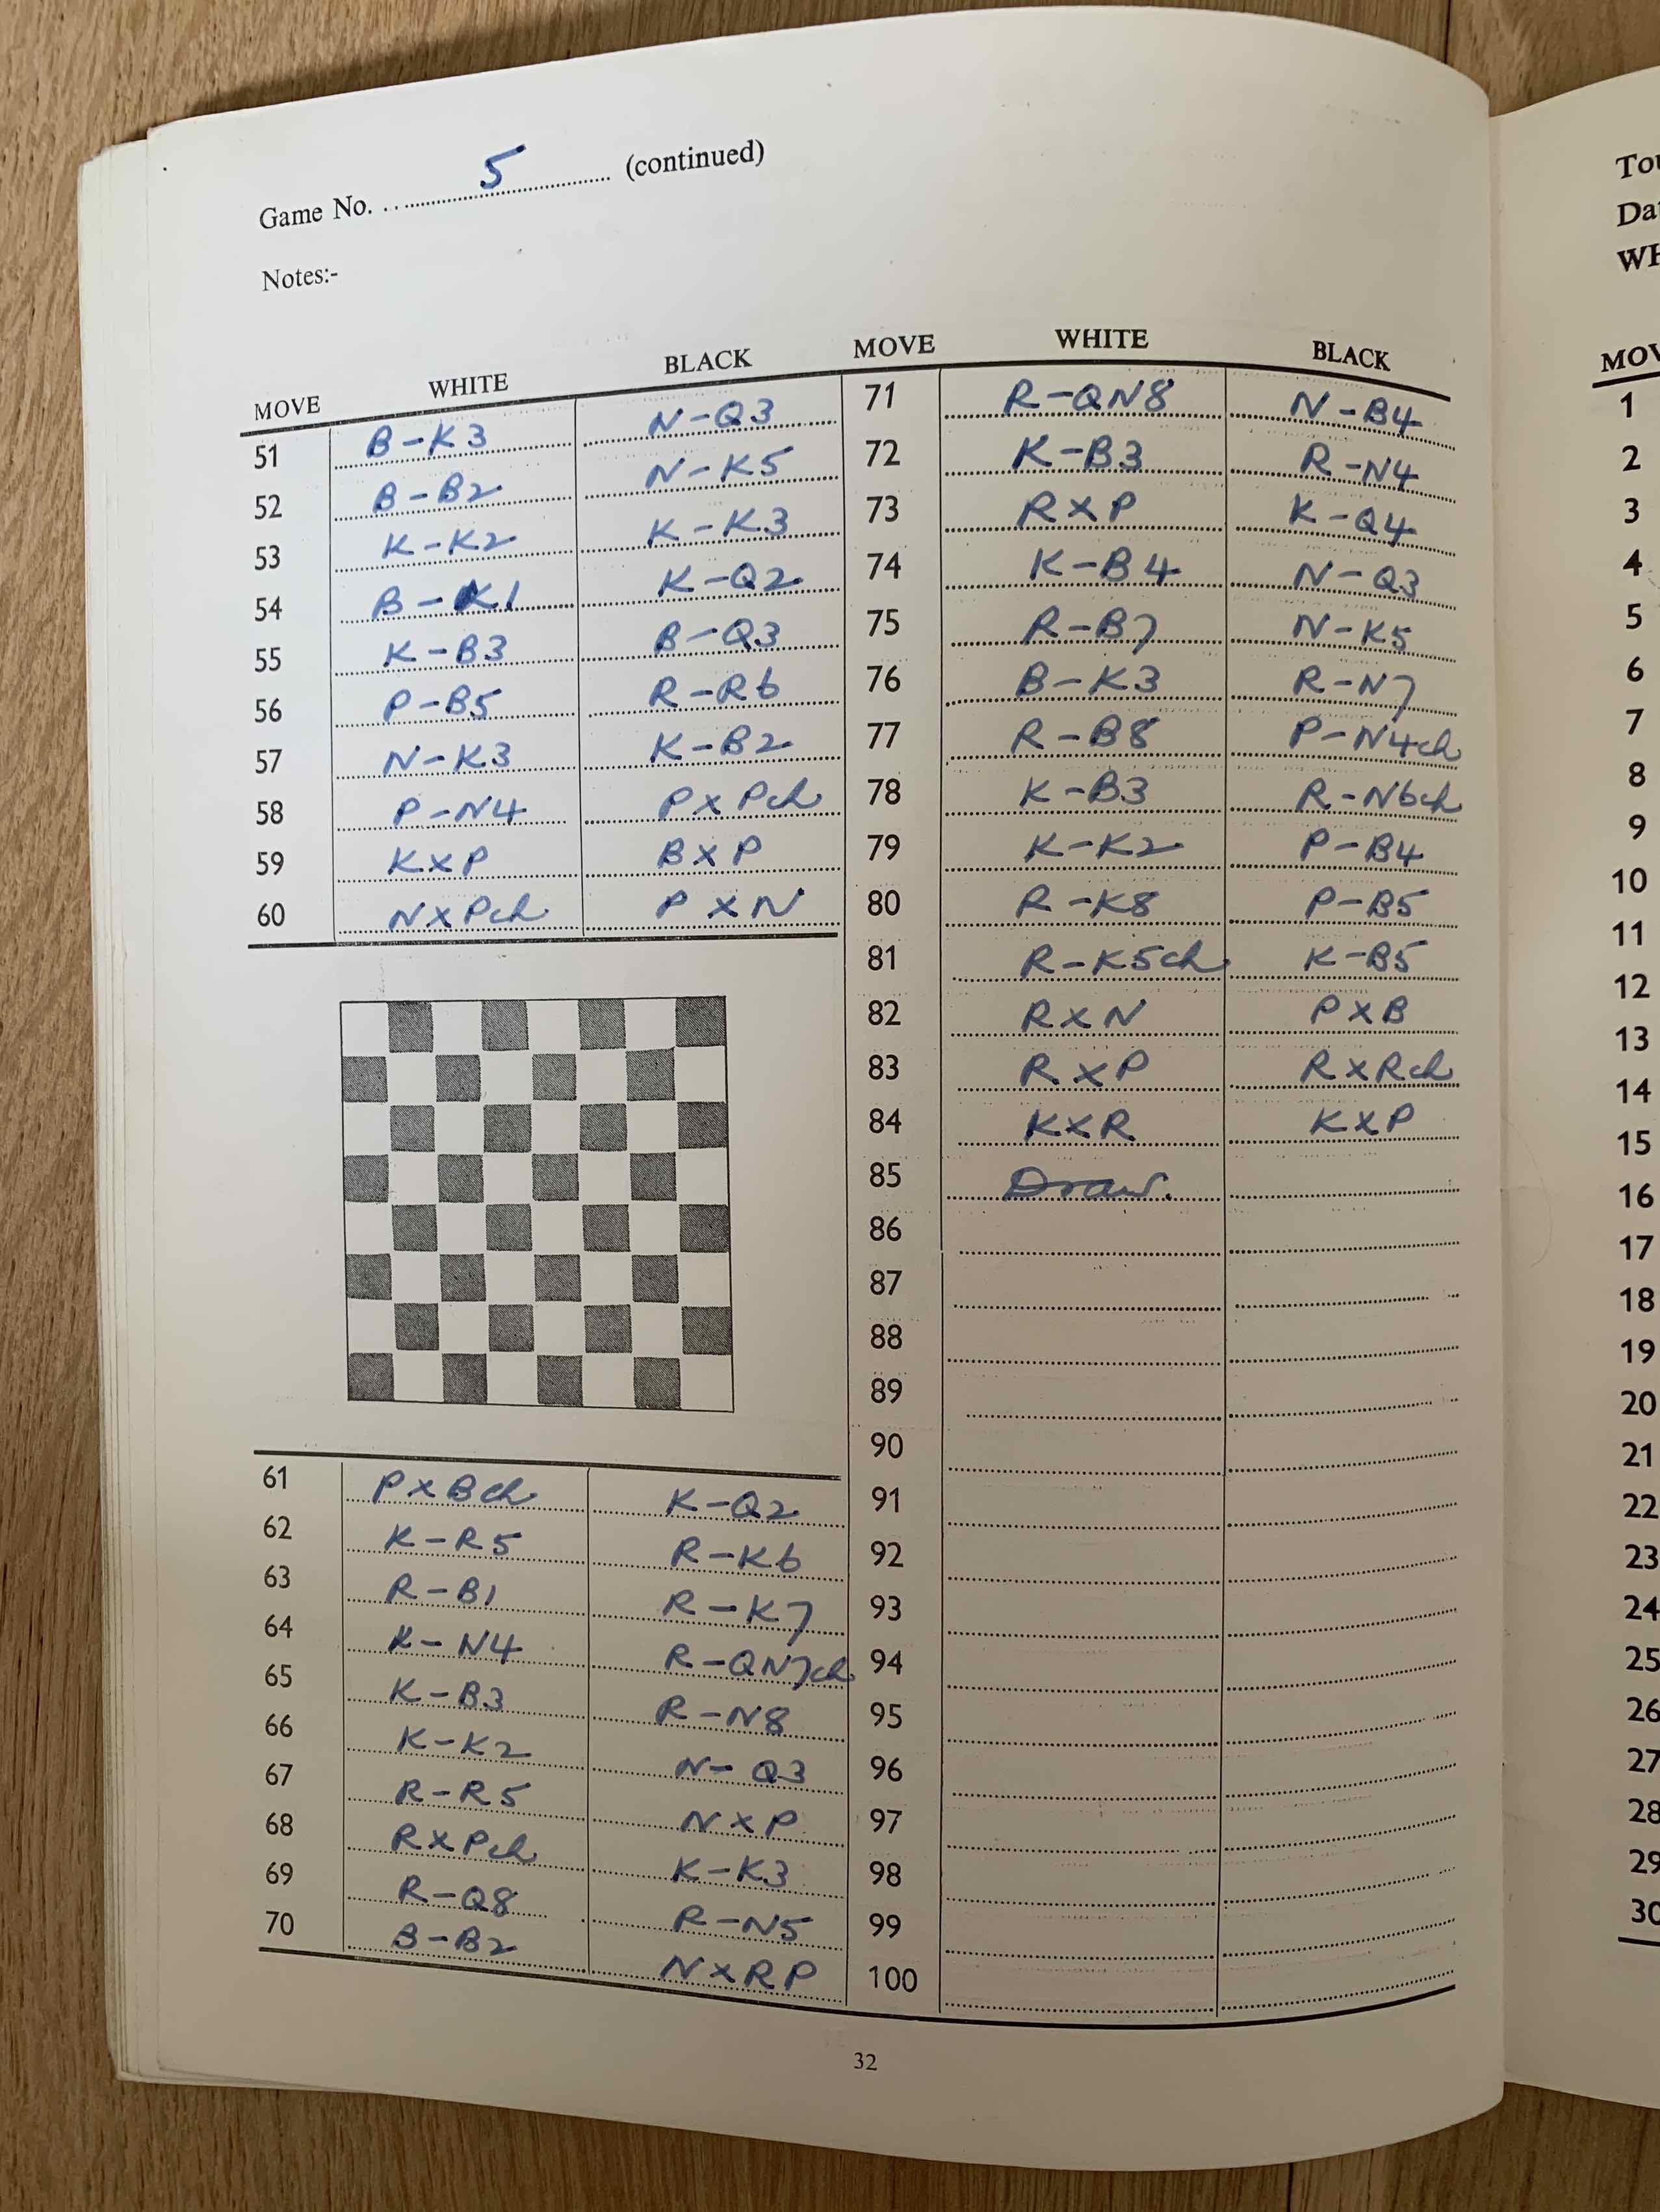 Game No. 5 (continued)
Notes:-
MOVE WHITE BLACK
51 B-K3 N-Q3
52 B-B2 N-K5
53 K-K2 K-K3
54 B-K1 K-Q2
55 K-B3 B-Q3
56 P-B5 R-R6
57 N-K3 K-B2
58 P-N4 PxPch
59 KxP BxP
60 NxPch PxN
61 PxBch K-Q2
62 K-R5 R-K6
63 R-B1 R-K7
64 K-N4 R-QN7ch
65 K-B3 R-N8
66 K-K2 N-Q3
67 R-R5 NxP
68 RxPch K-K3
69 R-Q8 R-N5
70 B-B2 NxRP
MOVE WHITE BLACK
71 R-QN8 N-B4
72 K-B3 R-N4
73 RxP K-Q4
74 K-B4 N-Q3
75 R-B7 N-K5
76 B-K3 R-N7
77 R-B8 P-N4ch
78 K-B3 R-N6ch
79 K-K2 P-B4
80 R-K8 P-B5
81 R-K5ch K-B5
82 RxN PxB
83 RxP RxRch
84 KxR KxP
85 Draw.
86
87
88
89
90
91
92
93
94
95
96
97
98
99
100
32
MOV
1
2
3
4
5
6
7
8
9
10
11
12
13
14
15
16
17
18
19
20
21
22
23
24
25
26
27
28
29
30